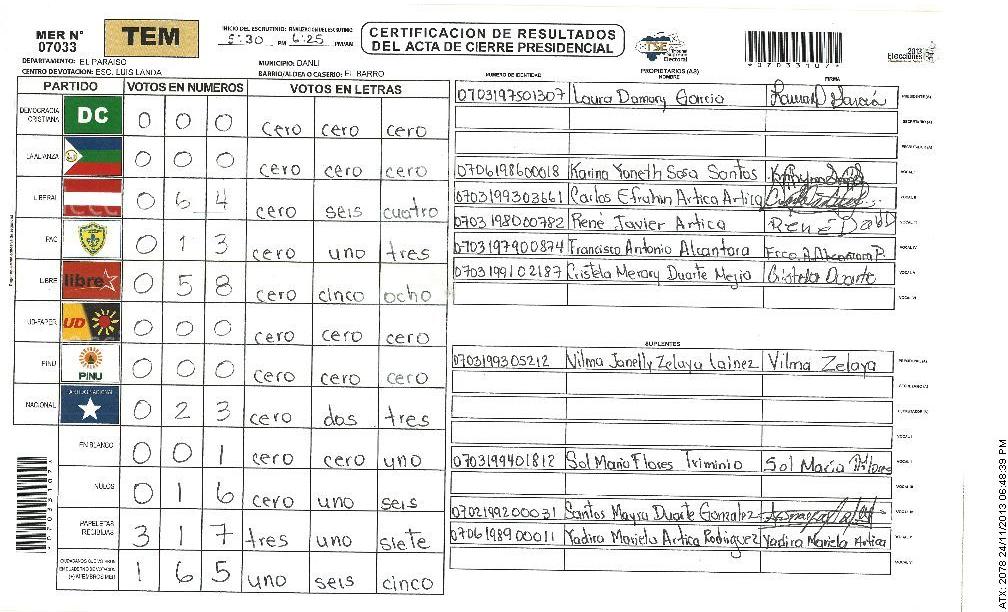 MER N° 07033
TEM
INICIO DEL ESCRUTINIO:
5:30 PM 6:25 PM/AM
CERTIFICACION DE RESULTADOS
DEL ACTA DE CIERRE PRESIDENCIAL
TSE
Tribunal Supremo Electoral
*07033107*
2013
Elecciones
DEPARTAMENTO: EL PARAISO
MUNICIPIO: DANLI
CENTRO DE VOTACION: ESC. LUIS LANDA
BARRIO/ALDEA O CASERIO: EL BARRO
PARTIDO VOTOS EN NUMEROS VOTOS EN LETRAS
DEMOCRACIA CRISTIANA DC 0 0 0 cero cero cero
LA ALIANZA 0 0 0 cero cero cero
LIBERAL 0 6 4 cero seis cuatro
PAC 0 1 3 cero uno tres
LIBRE libre 0 5 8 cero cinco ocho
UD-FAPER UD 0 0 0 cero cero cero
PINU PINU 0 0 0 cero cero cero
NACIONAL 0 2 3 cero dos tres
EN BLANCO 0 0 1 cero cero uno
NULOS 0 1 6 cero uno seis
PAPELETAS RECIBIDAS 3 1 7 tres uno siete
1 6 5 uno seis cinco
NUMERO DE IDENTIDAD PROPIETARIOS (AS) NOMBRE FIRMA
0703197501307 Laura Damary Garcia Laura D Garcia PRESIDENTE(A)
SECRETARIO(A)
ESCRUTADOR(A)
0706198600018 Karina Yoneth Sosa Santos VOCAL I
0703199303661 Carlos Efrahin Artica Artica VOCAL II
0703198000782 René Javier Artica René VOCAL III
0703197900874 Francisco Antonio Alcantara Frco. A. Alcantara P. VOCAL IV
0703199102187 Cristela Merary Duarte Mejia Cristela Duarte VOCAL V
VOCAL VI
SUPLENTES
0703199305212 Vilma Janelly Zelaya Lainez Vilma Zelaya PRESIDENTE(A)
SECRETARIO(A)
ESCRUTADOR(A)
VOCAL I
0703199401812 Sol Maria Flores Triminio Sol Maria Flores VOCAL II
VOCAL III
0702199200031 Santos Mayra Duarte Gonzalez VOCAL IV
0706198900011 Yadira Mariela Artica Rodriguez Yadira Mariela Artica VOCAL V
VOCAL VI
ATX: 2078 24/11/2013 06:48:39 PM